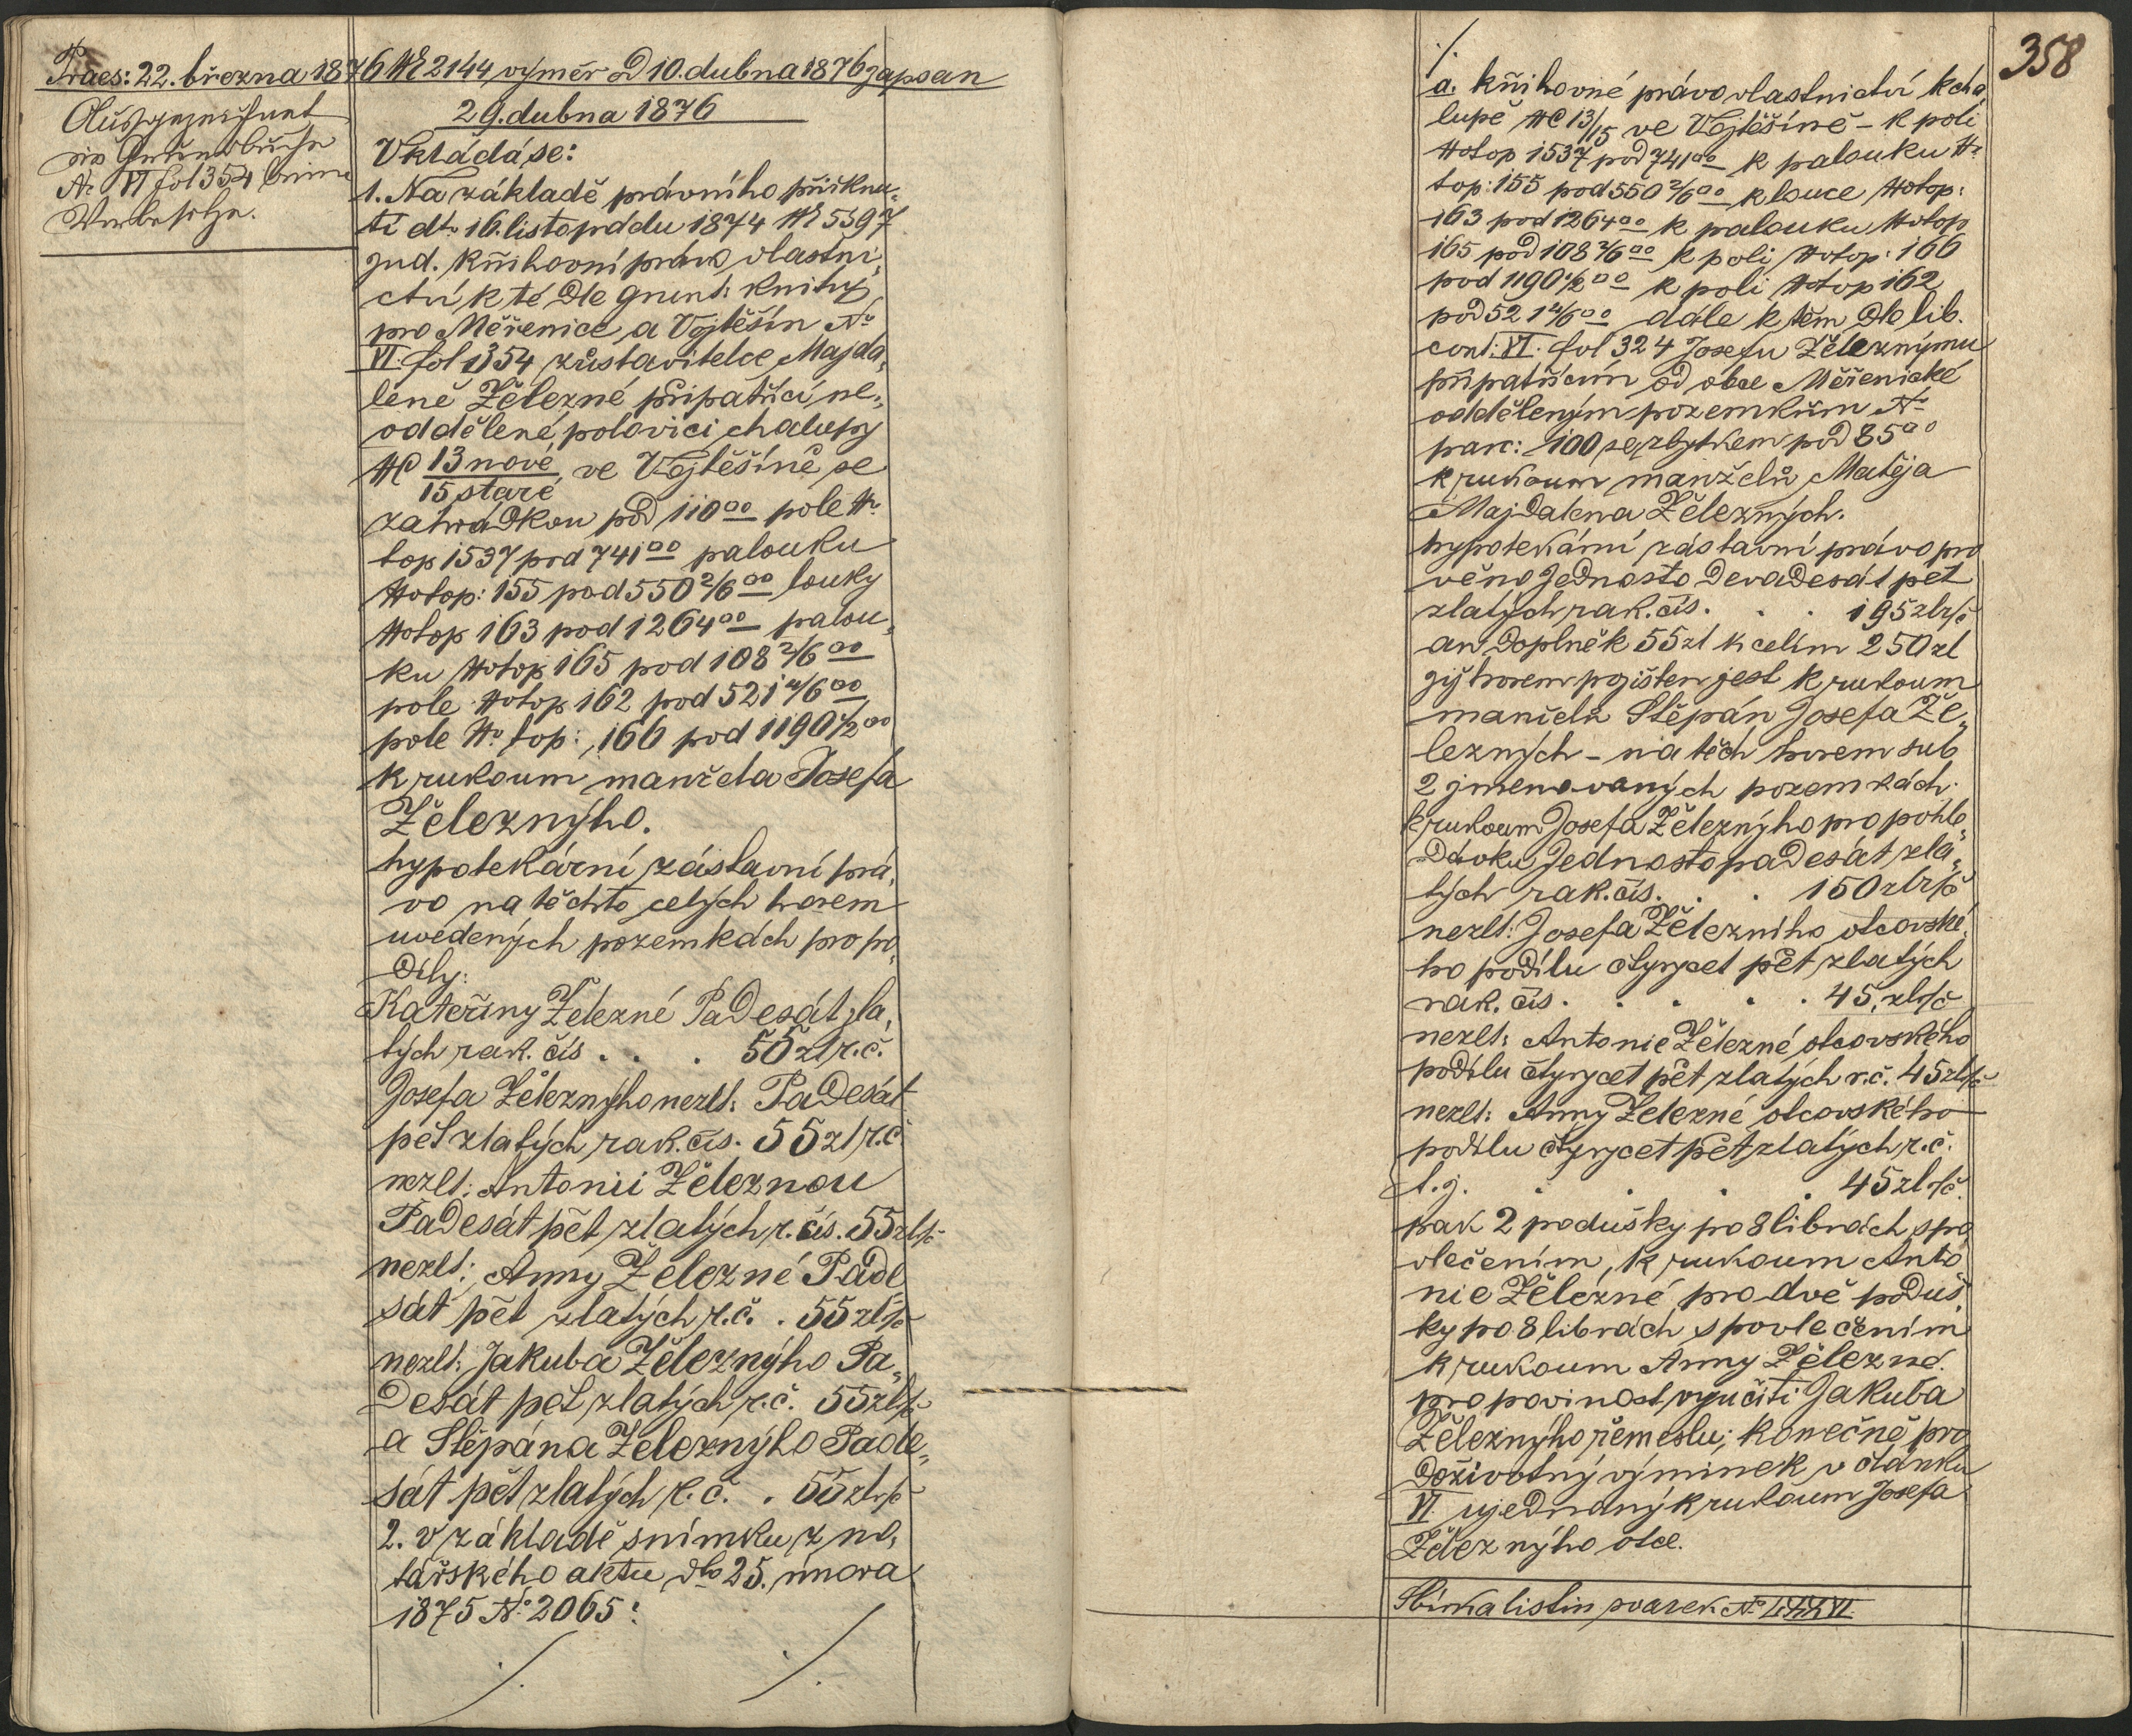 Praes: 22. března 1876 NE 2144, výměr dd 10. dubna 1876 zapsan
29. dubna 1876
Ausgezeichnet
im Grundbuche
No VI fol 354 beim
Vorbesitze.
Vkládá se:
1. Na základě právního přiknu„
tí dto 16. listopadu 1874 NE 5597
jud. knihovní právo vlastni„
ctví k té dle grunt: knihy
pro Měřenice a Vojtěšín No
VI. fol 354 zůstavitelce Majda„
léně Železné připatřící ne„
oddělené polovici chalupy
NC 13 nové
15 staré ve Vojtěšíně se
zahrádkou pod 110°° pole No
top 1537 pod 741°° palouku
No top: 155 pod 550 2/6°° louky
No top 163 pod 1264°° palou„
ku No top 165 pod 108 2/6°°
pole No top 162 pod 521 4/6°°
pole No top: 166 pod 1190 1/2°°
k rukoum manžela Josefa
Železnýho.
hypotekární zástavní prá„
vo na těchto celých horem
uvedených pozemkách pro po„
díly:
Kateřiny Železné Padesát zla„
tých rak. čís . . . 50 zl r. č.
Josefa Železnýho nezlt: Padesát
pět zlatých rak. čís. 55 zl r. č
nezlt: Antonii Železnou
Padesát pět zlatých r. čís. 55 zl r č
nezlt: Anny Železné Pade
sát pět zlatých r. č. . 55 zl r č
nezlt: Jakuba Železnýho Pa„
desát pět zlatých r. č. 55 zl r č
a Štěpána Železnýho Pade„
sát pět zlatých r. č. . 55 zl r č
2. V základě snímku z no„
tářského aktu dto 25. února
1875 No 2065:
./. ./.
358
./.
a. knihovné právo vlastnictví k cha„
lupě NC 13/15 ve Vojtěšíně – k poli
No top 1537 pod 741°° k palouku No
top: 155 pod 550 2/6°° k louce No top:
163 pod 1264°° k palouku No top
165 pod 108 2/6°° k poli No top: 166
pod 1190 1/2°° k poli No top 162
pod 521 4/6°° dále k těm dle lib.
cont: VI. fol 324 Josefu Železnýmu
připatřícím od obce Měřenické
odděleným pozemkům No
parc: 100 se zbytkem pod 85°°
k rukoum manželů Matěja
Majdalena Železných.
hypotekární zástavní právo pro
věno Jednosto devadesát pět
zlatých rak. čís. . . 195 zl r č
an doplněk 55 zl k celím 250 zl
již horem pojišten jest k rukoum
manželů Štěpán Josefa Že„
lezných – na těch horem sub
2 jmenovaných pozemkách
k rukoum Josefa Železnýho pro pohle„
dávku Jednostopadesát zla„
tých rak. čís. . . 150 zl r č
nezlt: Josefa Železního otcovské„
ho podílu čtyrycet pět zlatých
rak. čís . . . . . 45 zl r č
nezlt: Antonie Železné otcovského
podílu čtyrycet pět zlatých r. č. 45 zl r č
nezlt: Anny Železné otcovského
podílu čtyrycet pět zlatých r. č.
t. j. . . . . 45 zl r č.
pak 2 podušky po 8 librách s po
vlečením, k rukoum Anto
nie Železné, pro dvě poduš„
ky po 8 librách s povlečením
k rukoum Anny Železné.
pro povinost vyučiti Jakuba
Železnýho řemeslu; konečně pro
doživotný výminek v článku
VI ujednaný k rukoum Josefa
Železnýho otce.
Sbírka listin svazek No